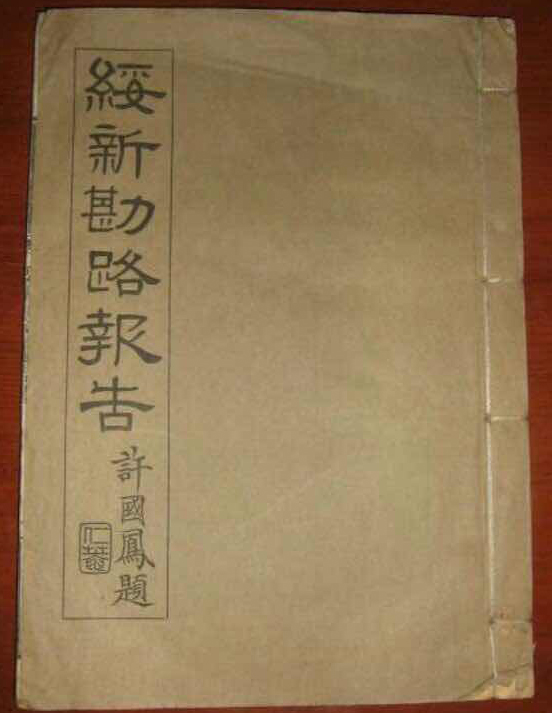 綏新勘路報告
許國鳳題